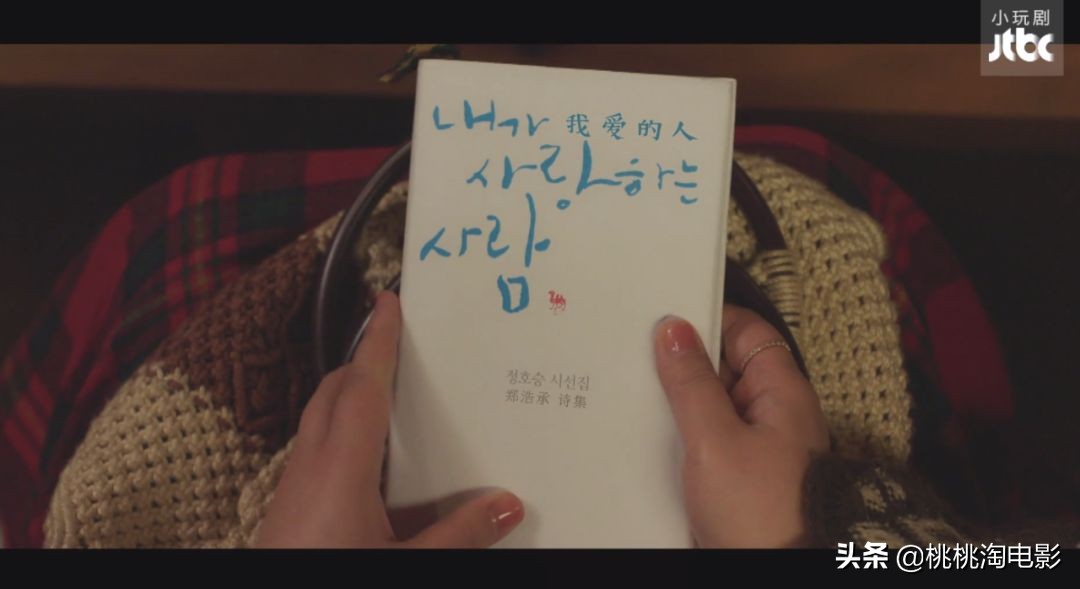 小玩剧
jtbc
내가 我爱的人
사랑하는
사람
정호승 시선집
郑浩承 诗集
头条 @桃桃淘电影